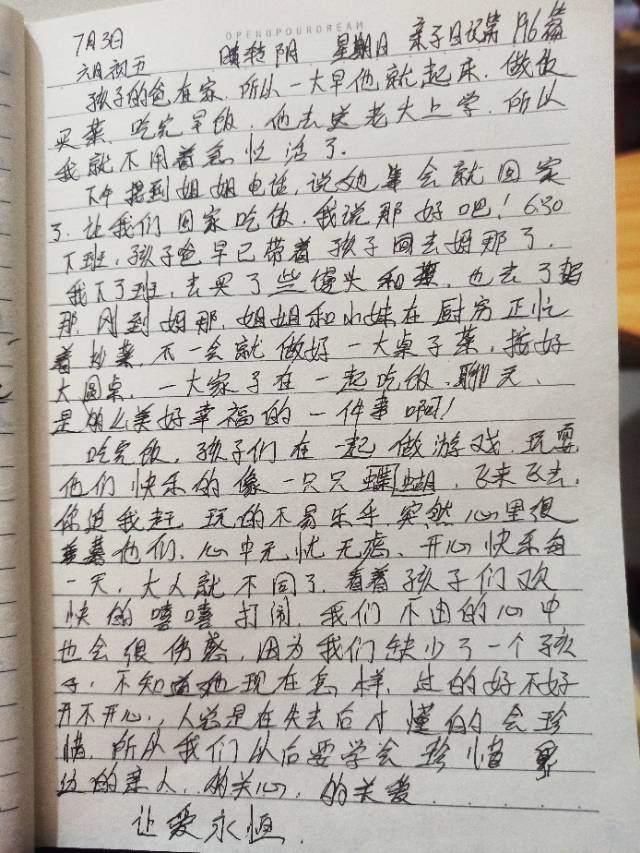 OPENUPOURDREAM
7月3日
六月初五 晴转阴 星期日 亲子日记第196篇
孩子的爸在家.所以一大早他就起床.做饭
买菜.吃完早饭.他去送老大上学.所以
我就不用着急忙活了.
下午接到姐姐电话,说她 会就回家
了.让我们回家吃饭.我说那好吧!6:30
下班,孩子爸早已带着孩子回去妈那了.
我下了班,去买了些馒头和菜,也去了妈
那.刚到妈那.姐姐和小妹在厨房正忙
着炒菜.不一会就做好一大桌子菜,按好
大圆桌.一大家子在一起吃饭.聊天.
是多么美好幸福的一件事啊!
吃完饭,孩子们在一起做游戏.玩耍
他们快乐的像一只只蝴蝴.飞来飞去,
你追我赶.玩的不易乐乎.突然心里很
羡慕他们.心中无忧无虑、开心快乐每
一天,大人就不同了.看着孩子们欢
快的嘻嘻打闹.我们不由的心中
也会很伤感,因为我们缺少了一个孩
子,不知道她现在怎样,过的好不好
开不开心,人总是在失去后才懂的会珍
惜.所以我们以后要学会珍惜身
边的亲人.的关心,的关爱......
让爱永恒.